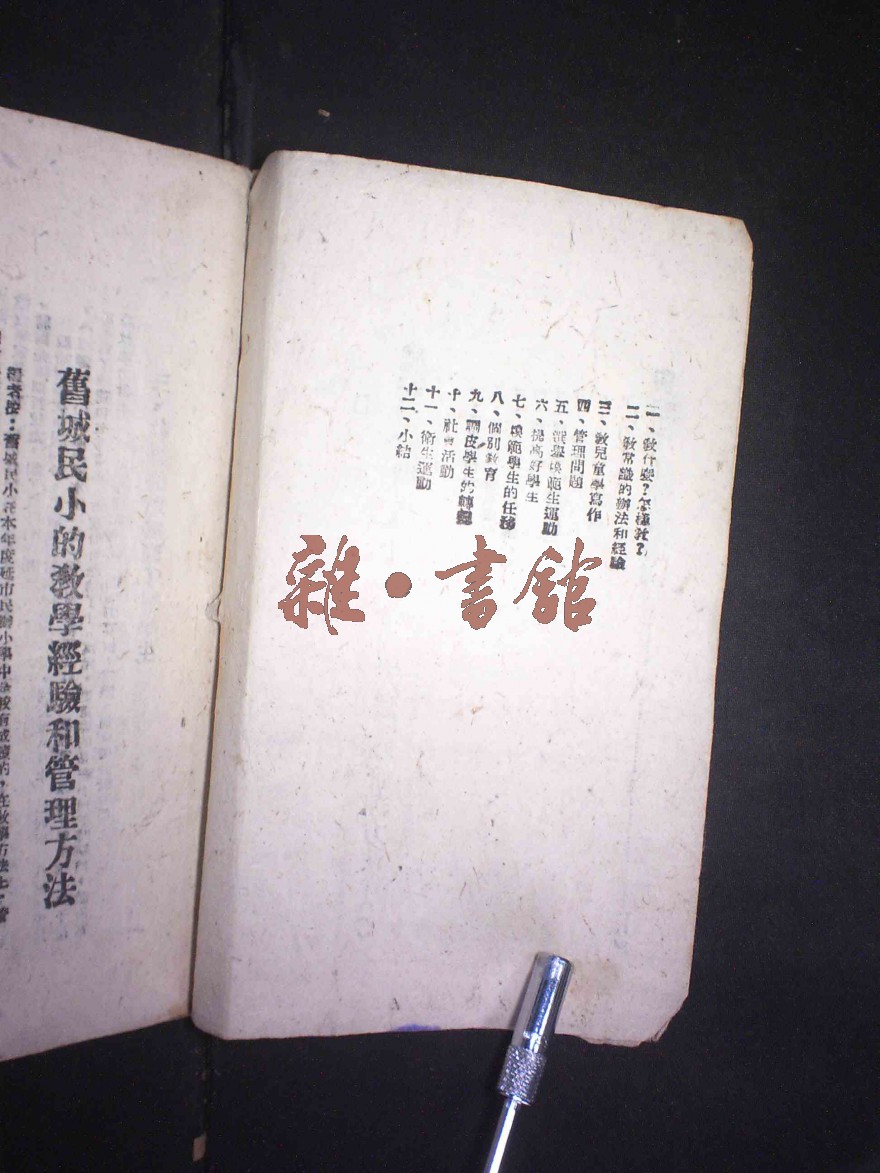 一、教什麼？怎樣教？
二、教常識的辦法和經驗
三、教兒童學寫作
四、管理問題
五、選舉模範生運動
六、提高好學生
七、模範學生的任務
八、個別教育
九、調皮學生的轉變
十、社會活動
十一、衛生運動
十二、小結
舊城民小的教學經驗和管理方法
編者按：舊城民小在本年度延市民辦小學中是較有成績的，在教學方法上，管
雜·書館